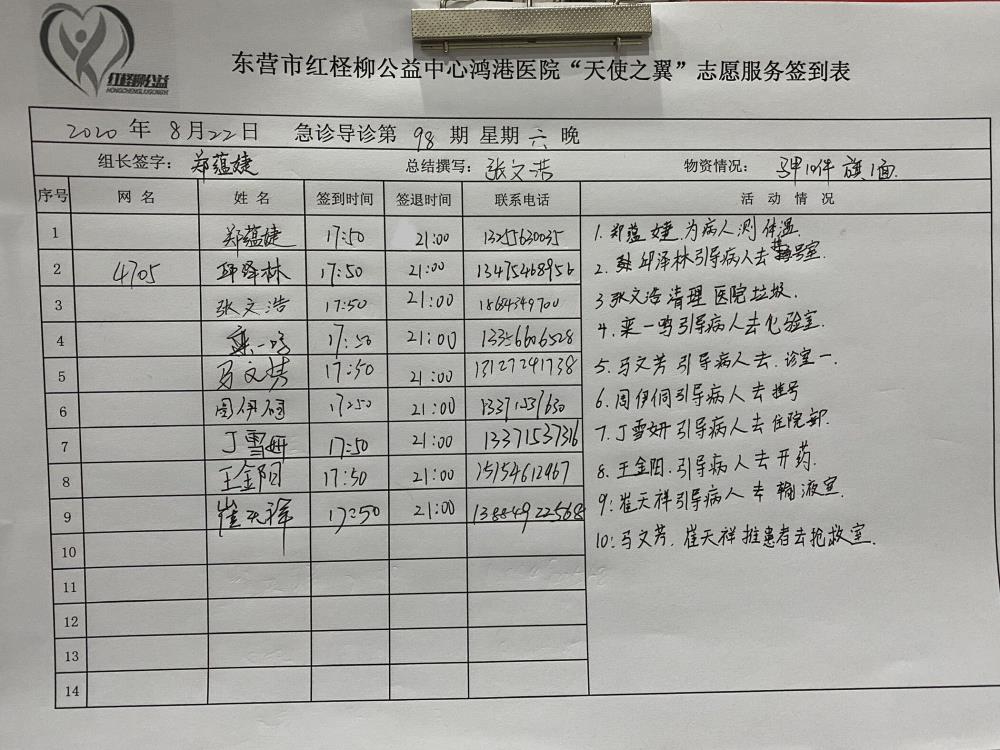 红柽柳公益
HONGCHENGLIUGONGYI
东营市红柽柳公益中心鸿港医院“天使之翼”志愿服务签到表
2020 年 8月22日 急诊导诊第 98 期 星期 六 晚
组长签字： 郑蕴婕 总结撰写： 张文浩 物资情况： 马甲10件 旗1面.
序号 网 名 姓 名 签到时间 签退时间 联系电话 活 动 情 况
1 郑蕴婕 17:50 21:00 13255630035 1. 郑蕴婕.为病人测体温.
2 4705 邱泽林 17:50 21:00 13475468956 2. 邱泽林引导病人去挂号室.
3 张文浩 17:50 21:00 18684349700 3 张文浩清理医院垃圾.
4 栾一鸣 17:50 21:00 13356606528 4. 栾一鸣引导病人去化验室.
5 马文芳 17:50 21:00 13127291738 5. 马文芳引导病人去.诊室一.
6 周伊侗 17:50 21:00 13371537630 6. 周伊侗引导病人去挂号
7 丁雪妍 17:50 21:00 13371537316 7. 丁雪妍引导病人去住院部.
8 王金阳 17:50 21:00 15154612967 8. 王金阳.引导病人去开药.
9 崔天祥 17:50 21:00 13884922568 9: 崔天祥引导病人去输液室.
10 10: 马文芳.崔天祥推患者去抢救室.
11
12
13
14